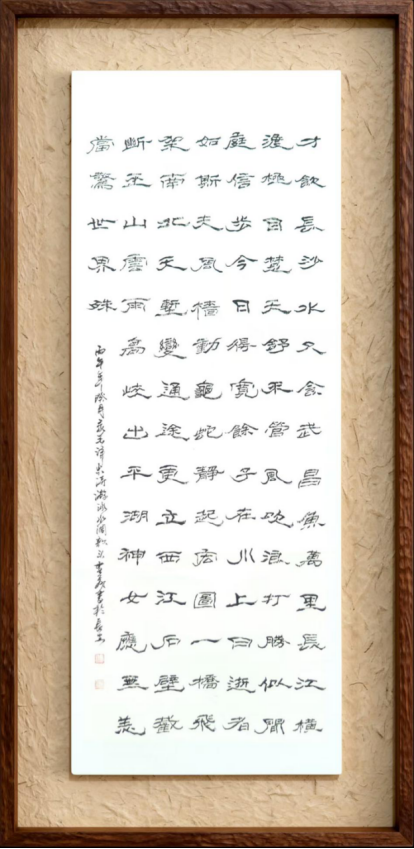 才飲長沙水又食武昌魚萬里長江橫
渡極目楚天舒不管風吹浪打勝似閒
庭信步今日得寬餘子在川上曰逝者
如斯夫風檣動龜蛇靜起宏圖一橋飛
架南北天塹變通途更立西江石壁截
斷巫山雲雨高峽出平湖神女應無恙
當驚世界殊
毛澤東 游泳水調歌頭 書於長安